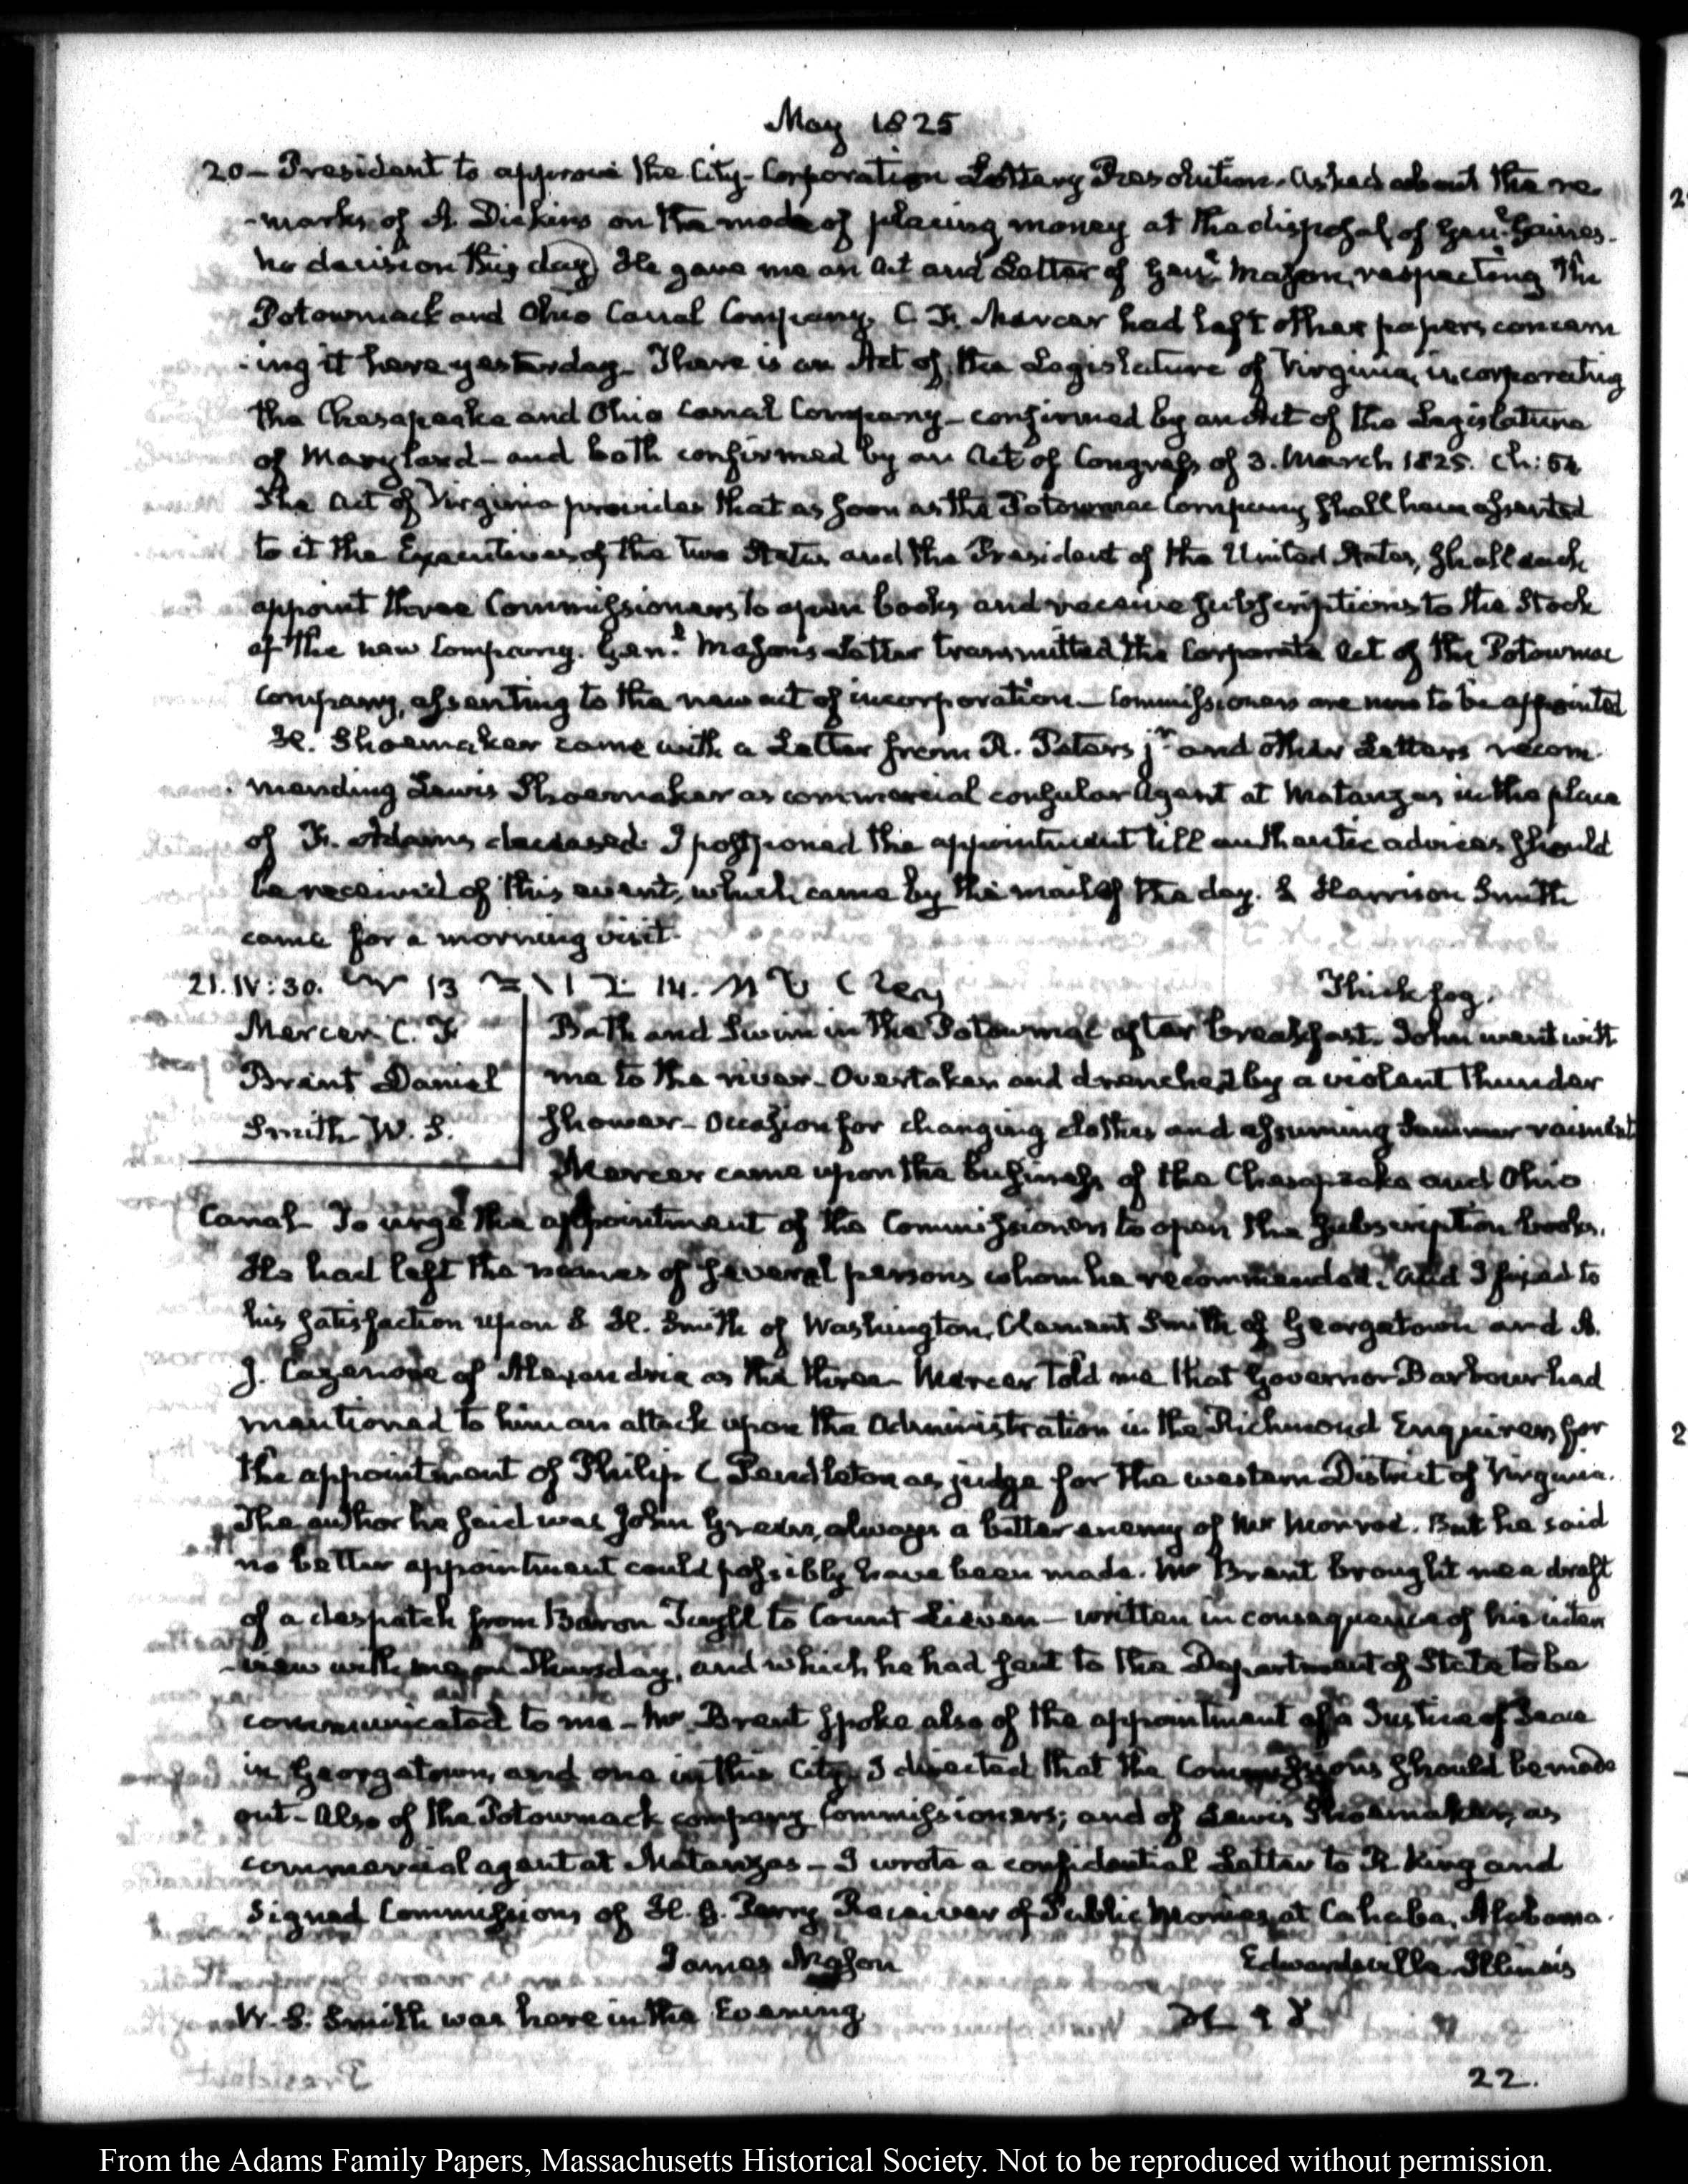 May 1825
20 – President to approve the City-Corporation Lottery Resolution. Asked about the re-
-marks of A. Dickins on the mode of placing money at the disposal of Genl. Gaines.
no decision this day) He gave me an Act and Letter of Genl. Mason, respecting the
Potowmack and Ohio Canal Company. C. F. Mercer had left other papers concern
-ing it here yesterday. There is an Act of the Legislature of Virginia, incorporating
the Chesapeake and Ohio Canal Company – confirmed by an Act of the Legislature
of Maryland – and both confirmed by an Act of Congress of 3. March 1825. Ch: 52
The Act of Virginia provides that as soon as the Potowmac Company shall have assented
to it the Executives of the two States and the President of the United States, shall each
appoint three Commissioners to open books and receive subscriptions to the Stock
of the new Company. Genl. Mason's Letter transmitted the Corporate Act of the Potowmac
Company, assenting to the new act of incorporation – Commissioners are now to be appointed
H. Shoemaker came with a Letter from R. Peters jr. and other Letters recom-
mending Lewis Shoemaker as commercial consular Agent at Matanzas in the place
of F. Adams deceased. I postponed the appointment till authentic advices should
be received of this event, which came by the mail of the day. S Harrison Smith
came for a morning visit.
21. IV:30. 13 14. Thick fog.
Mercer. C. F Bath and Swim in the Potowmac after breakfast. John went with
Brent Daniel me to the river – Overtaken and drenched by a violent thunder
Smith W. S. shower – Occasion for changing clothes and assuming Summer raiment
Mercer came upon the business of the Chesapeake and Ohio
Canal – To urge the appointment of the Commissioners to open the subscription books.
He had left the names of several persons whom he recommended. And I fixed to
his satisfaction upon S H. Smith of Washington, Clement Smith of Georgetown and A.
J. Cazenove of Alexandria as the three – Mercer told me that Governor Barbour had
mentioned to him an attack upon the Administration in the Richmond Enquirer, for
the appointment of Philip C Pendleton as judge for the western District of Virginia.
The author he said was John Green, always a bitter enemy of Mr Monroe. But he said
no better appointment could possibly have been made. Mr Brent brought me a draft
of a despatch from Baron Tuyll to Count Lieven – written in consequence of his inter
-view with me on Thursday, and which he had sent to the Department of State to be
communicated to me – Mr Brent spoke also of the appointment of a Justice of Peace
in Georgetown, and one in this City, I directed that the Commissions should be made
out – Also of the Potowmack company Commissioners; and of Lewis Shoemaker, as
commercial agent at Matanzas – I wrote a confidential Letter to R. King and
signed Commissions of H. G. Perry Receiver of Public Monies, at Cahaba, Alabama.
James Mason Edwardsville Illinois
W. S. Smith was here in the Evening
22.
From the Adams Family Papers, Massachusetts Historical Society. Not to be reproduced without permission.